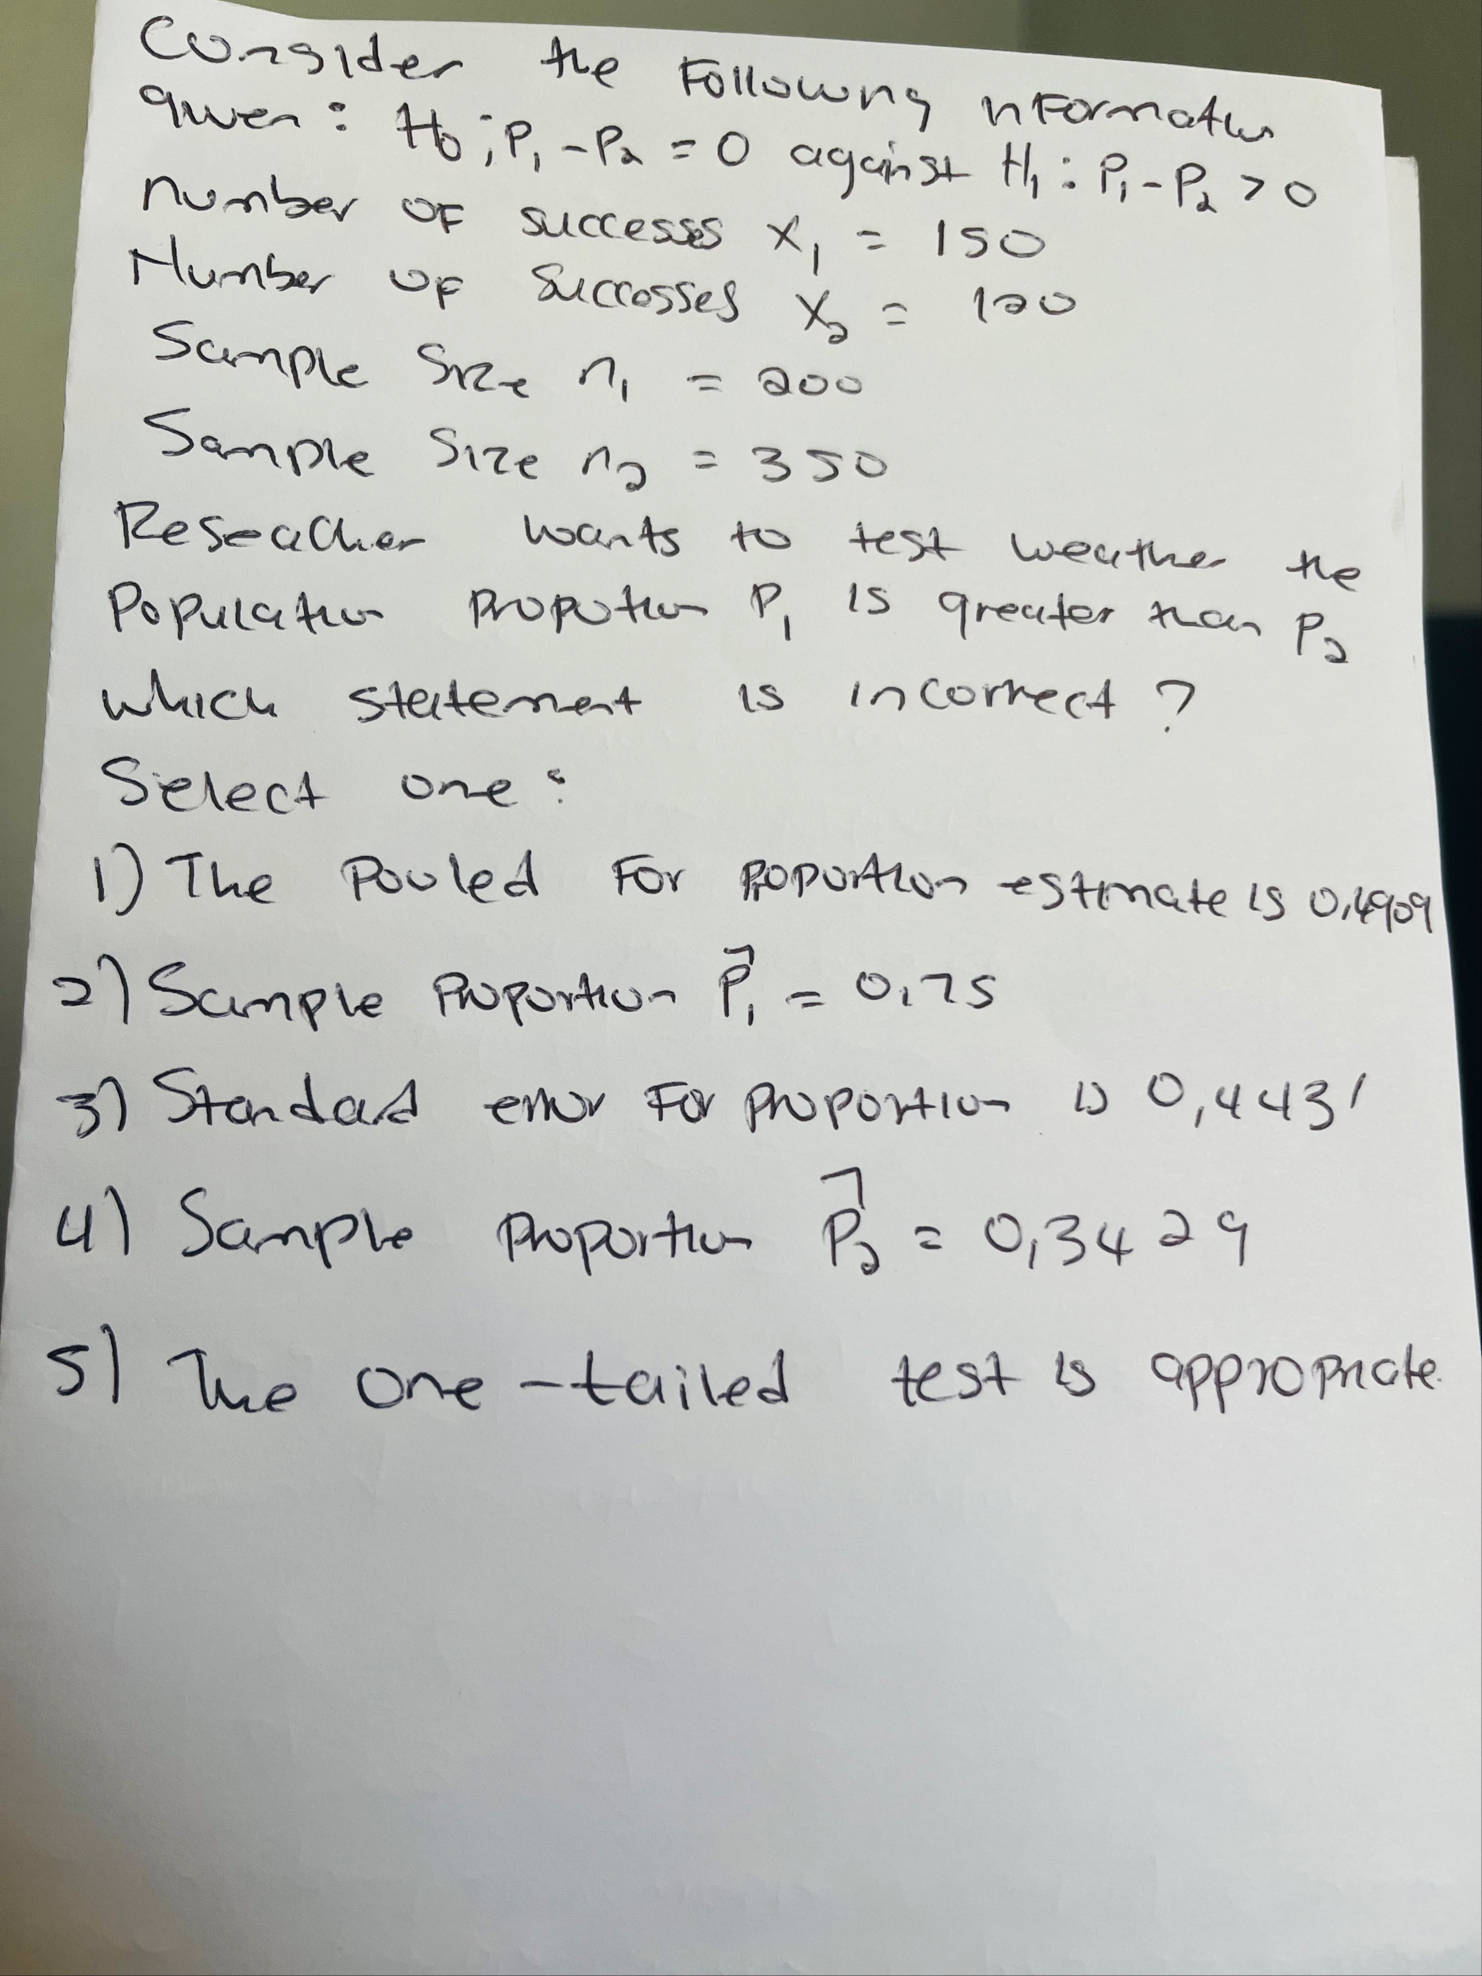 Consider the Following nformation
given : H₀ ; P₁ - P₂ = 0 against H₁ : P₁ - P₂ > 0
number of successes X₁ = 150
Number of Successes X₂ = 120
Sample Size n₁ = 200
Sample Size n₂ = 350
Reseacher wants to test weather the
Population propotion P₁ is greater than P₂
which statement is incorrect ?
Select one :
1) The Pooled For proportion estimate is 0,4909
2) Sample Proportion P⃗₁ = 0,75
3) Standard error For proportion is 0,4431
4) Sample proportion P⃗₂ = 0,3429
5) The one-tailed test is appropriate.